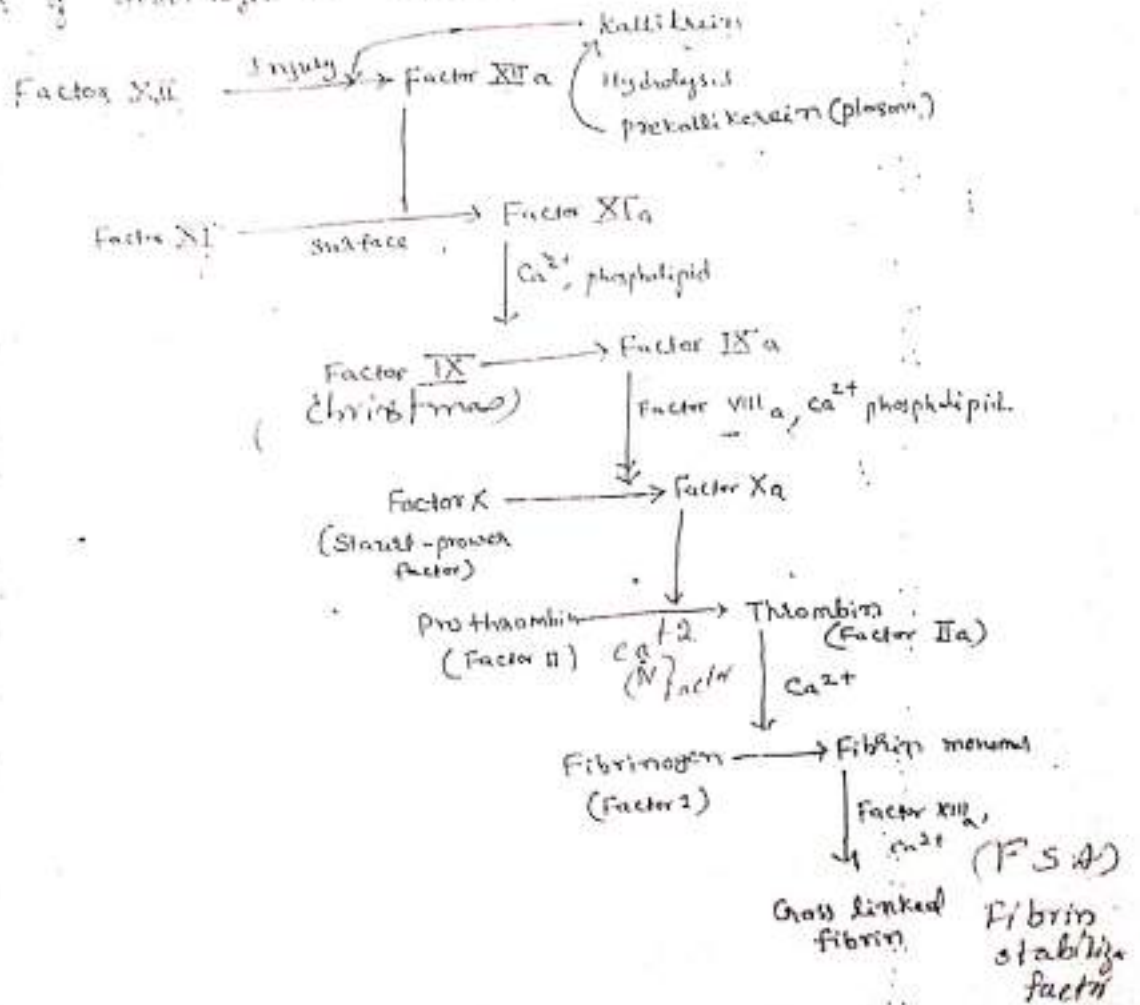 Kallikrein
Factor XII Injury Factor XIIa Hydrolysis
prekallikerein (plasma)
Factor XI surface Factor XIa
Ca2+, phospholipid
Factor IX Factor IXa
(christmas) Factor VIIIa, Ca2+ phospholipid.
Factor X Factor Xa
(Staurt-prower
factor)
Prothrombin Thrombin
(Factor II) Ca+2 (Factor IIa)
Ca2+
Fibrinogen Fibrin monomer
(Factor I)
Factor XIIIa,
Ca2+ (FSA)
Cross linked Fibrin
fibrin stabilize
factor